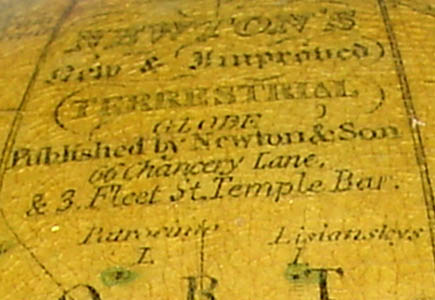 NEWTON'S
New & Improved
TERRESTRIAL
GLOBE
Published by Newton & Son
66 Chancery Lane,
& 3. Fleet St. Temple Bar.
Lisianskys
I. I.
O R T